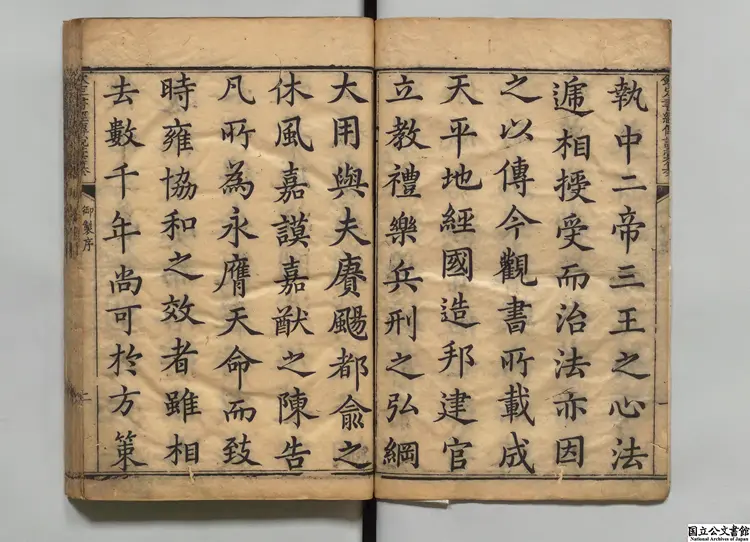 執中二帝三王之心法
遞相授受而治法亦因
之以傳今觀書所載成
天平地經國造邦建官
立教禮樂兵刑之弘綱
大用與夫賡颺都俞之
休風嘉謨嘉猷之陳告
凡所為永膺天命而致
時雍協和之效者雖相
去數千年尚可於方策
御製序
二
国立公文書館
National Archives of Japan